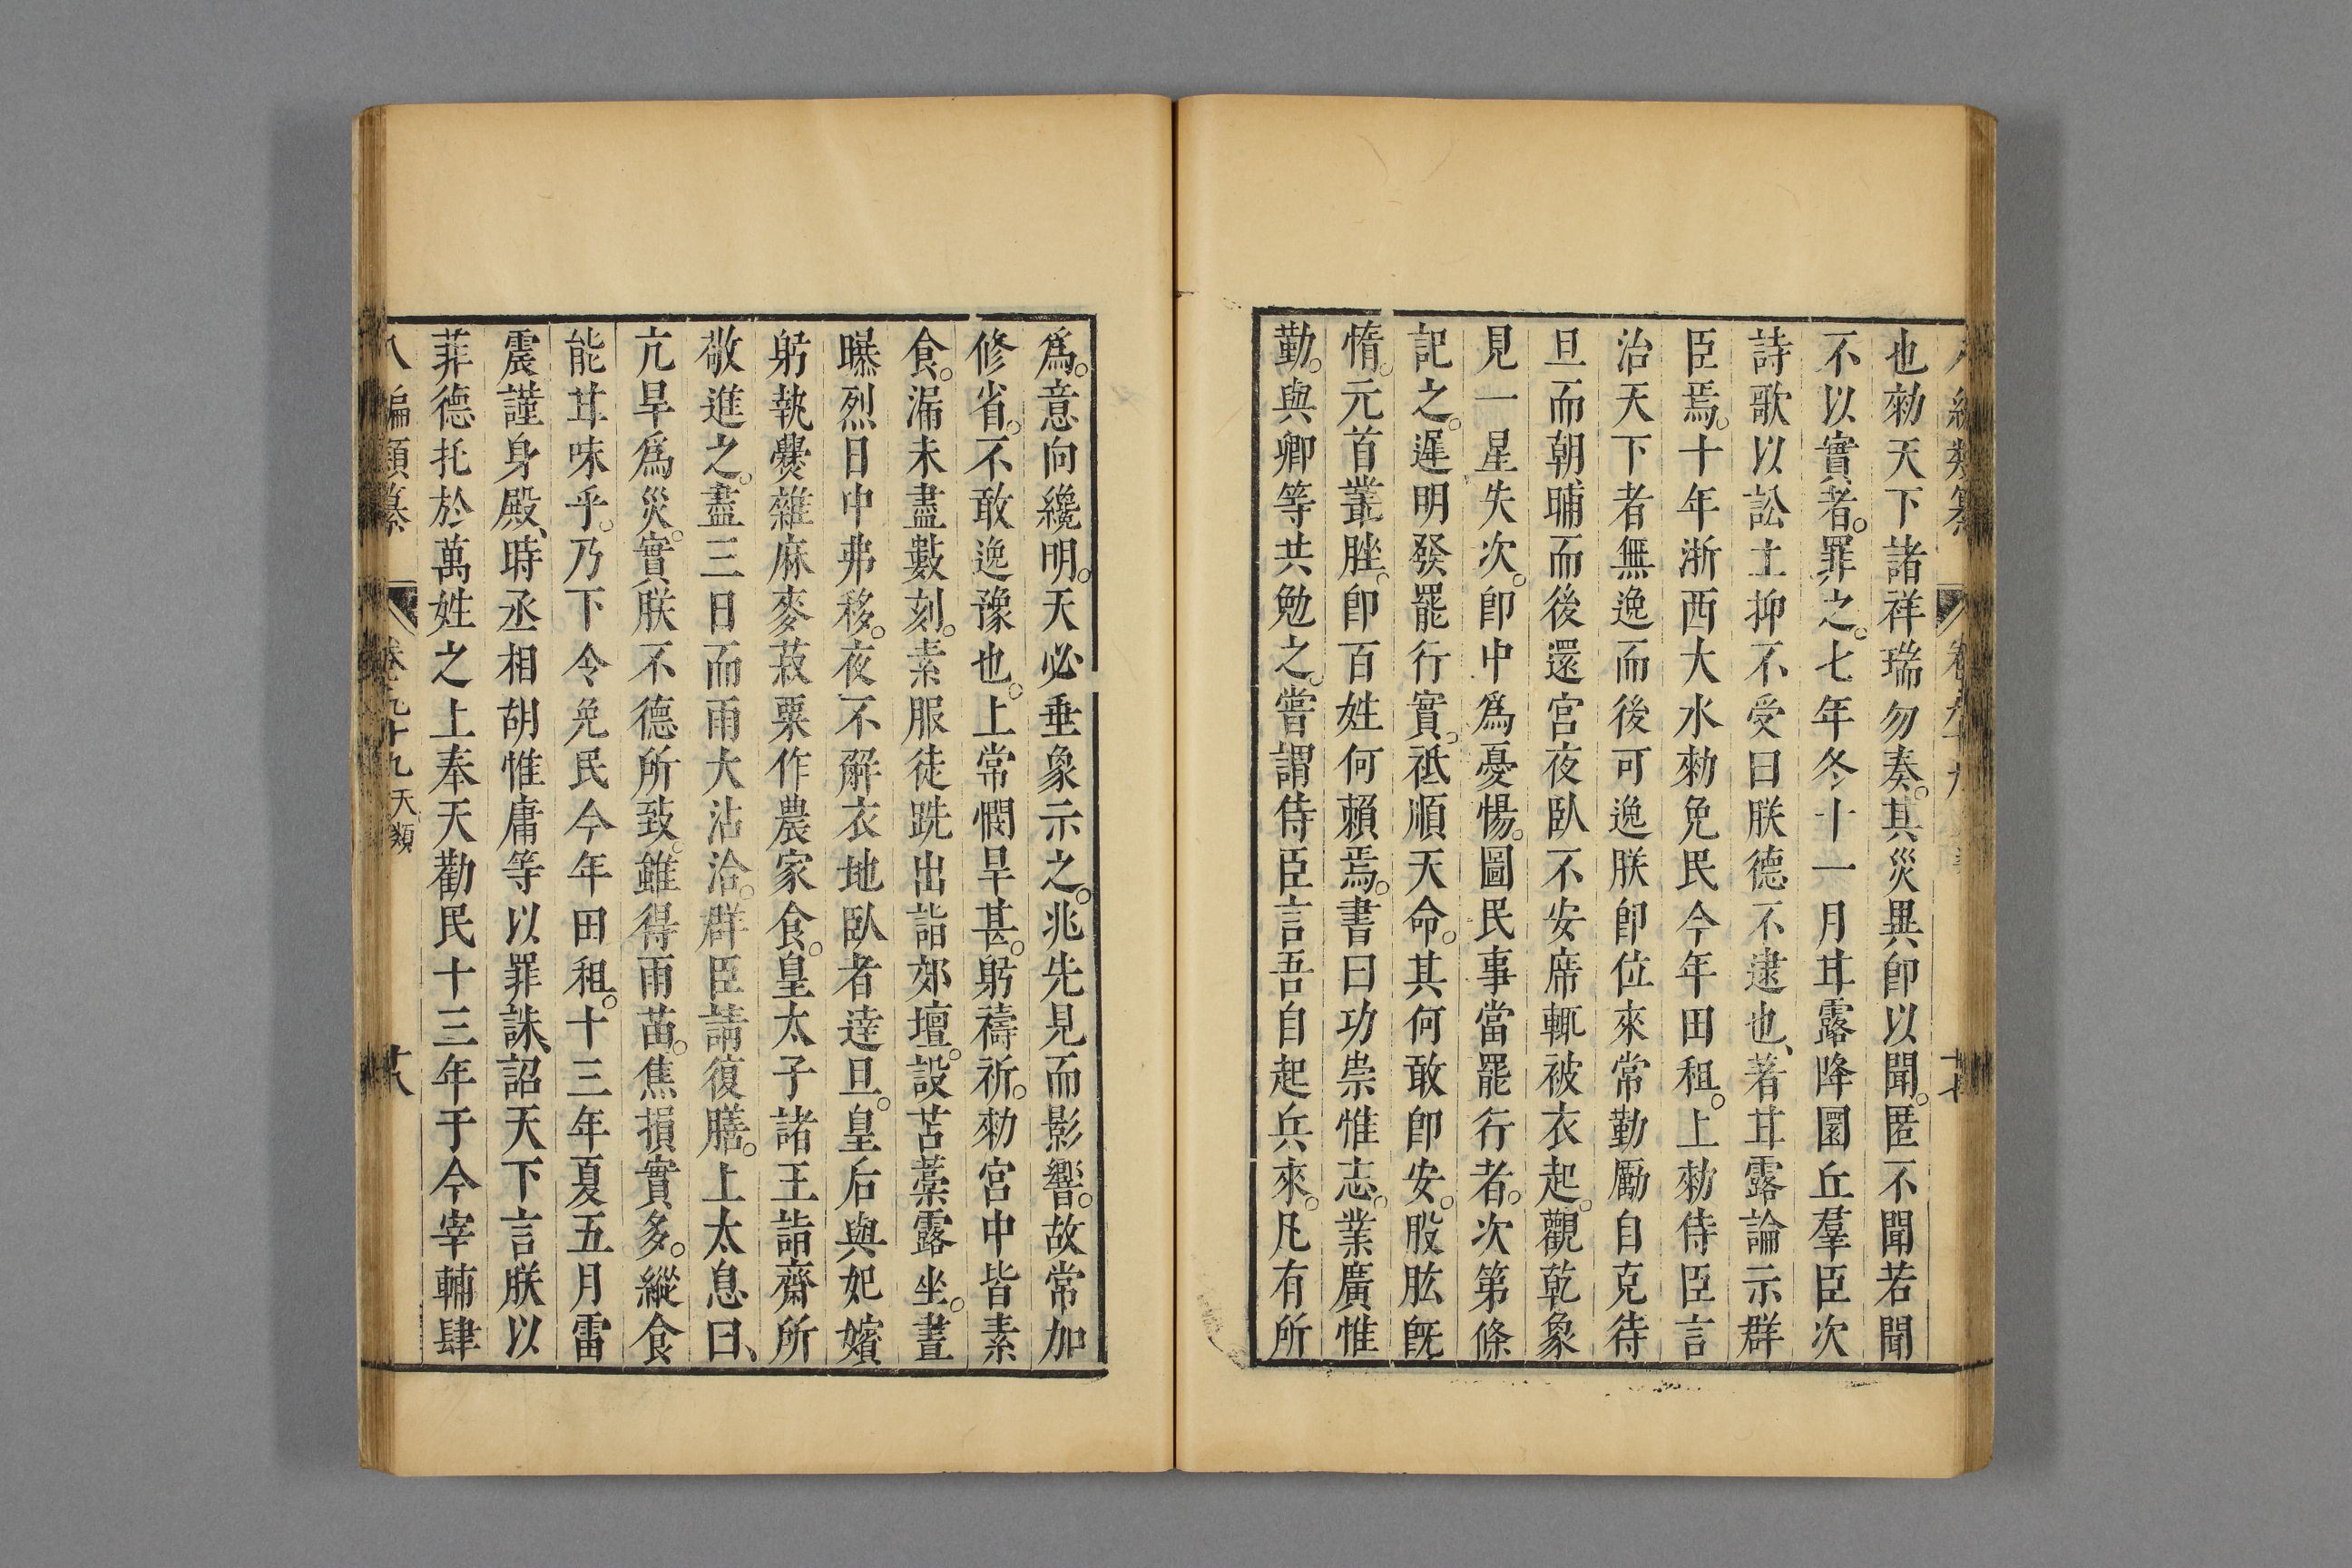 也勑天下諸祥瑞勿奏其災異卽以聞匿不聞若聞
不以實者罪之七年冬十一月甘露降圜丘羣臣次
詩歌以訟上抑不受曰朕德不逮也著甘露論示群
臣焉十年浙西大水勑免民今年田租上勑侍臣言
治天下者無逸而後可逸朕卽位來常勤勵自克待
旦而朝晡而後還宮夜臥不安席輒被衣起觀乾象
見一星失次卽中爲憂惕圖民事當罷行者次第條
記之遲明發罷行實祗順天命其何敢卽安股肱旣
惰元首叢脞卽百姓何賴焉書曰功崇惟志業廣惟
勤與卿等共勉之嘗謂侍臣言吾自起兵來凡有所
爲意向纔明天必垂象示之兆先見而影響故常加
修省不敢逸豫也上常憫旱甚躬禱祈勑宮中皆素
食漏未盡數刻素服徒跣出詣郊壇設苫藁露坐晝
曝烈日中弗移夜不解衣地臥者達旦皇后與妃嬪
躬執爨雜麻麥菽粟作農家食皇太子諸王詣齋所
敬進之盡三日而雨大沾洽群臣請復膳上太息曰
亢旱爲災實朕不德所致雖得雨苗焦損實多縱食
能甘味乎乃下令免民今年田租十三年夏五月雷
震謹身殿時丞相胡惟庸等以罪誅詔天下言朕以
菲德托於萬姓之上奉天勸民十三年于今宰輔肆
八編類纂 卷九十九 天類 十八